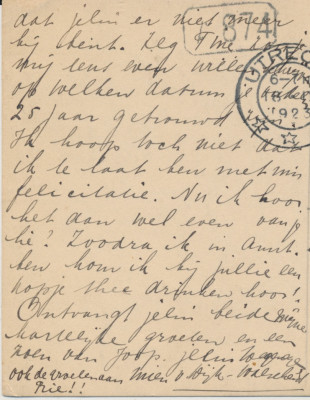 dat jelui er niet meer
bij bent. Zeg Tine
mij eens even willen
op welken datum je
25 jaar getrouwd
Ik hoop toch niet dat
ik te laat ben met mijn
felicitatie. Nu ik hoor
het dan wel even van je
hé? Zoodra ik in Amst.
ben kom ik bij jullie een
kopje thee drinken hoor!
Ontvangt jelui beide mijne
hartelijke groeten en een
zoen van Joop.
ook de groeten aan Mien v. Wijk
874
UTRECHT
1923